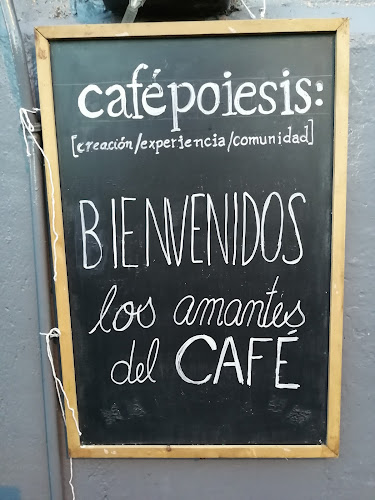 cafépoiesis:
[creación/experiencia/comunidad]
BIENVENIDOS
los amantes
del CAFÉ